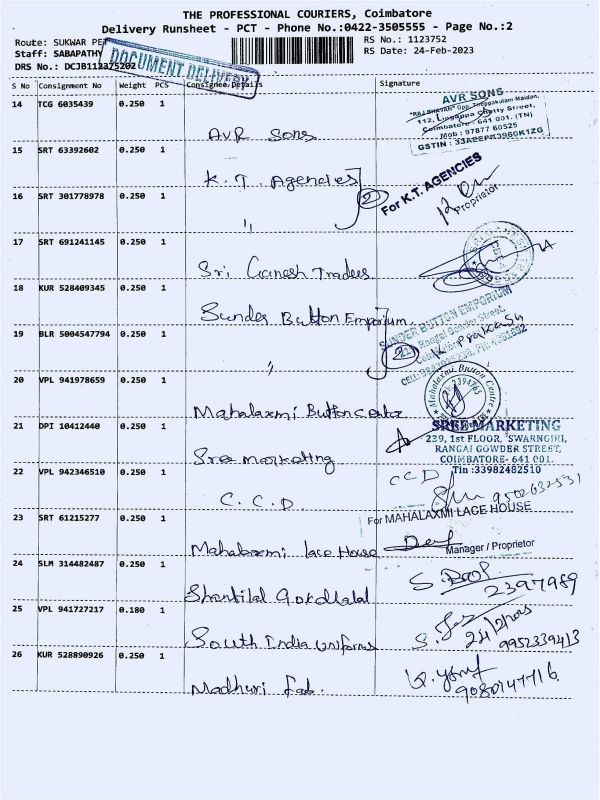 THE PROFESSIONAL COURIERS, Coimbatore
Delivery Runsheet - PCT - Phone No.:0422-3505555 - Page No.:2
Route: SUKWAR PET
RS No.: 1123752
Staff: SABAPATHY
RS Date: 24-Feb-2023
DRS No.: DCJB112375202
DOCUMENT DELIVERY
S No Consignment No Weight PCS Consignee Details Signature
14 TCG 6035439 0.250 1
AVR Sons
AVR SONS
"RAJ BHAVAN" Opp. Theppakulam Maidan,
112, Lingappa Chetty Street,
Coimbatore - 641 001. (TN)
Mob : 97877 60525
15 SRT 63392602 0.250 1
K.T. Agencies
For K.T. AGENCIES
Proprietor
16 SRT 301778978 0.250 1
"
2
17 SRT 691241145 0.250 1
Sri Ganesh Traders
18 KUR 528409345 0.250 1
Sunder Button Emporium
SUNDER BUTTON EMPORIUM
19 BLR 5004547794 0.250 1
"
2
K. Prakash
20 VPL 941978659 0.250 1
Mahalaxmi Button center
Mahalaxmi Button Centre
2394765
21 DPI 10412440 0.250 1
Sree marketing
SREE MARKETING
239, 1st FLOOR, SWARNGIRI,
RANGAI GOWDER STREET,
COIMBATORE- 641 001.
Tin :33982482510
22 VPL 942346510 0.250 1
C.C.D
CCD
23 SRT 61215277 0.250 1
Mahalaxmi lace House
For MAHALAXMI LACE HOUSE
Manager / Proprietor
24 SLM 314482487 0.250 1
Shantilal Gordhalal
2397989
25 VPL 941727217 0.180 1
South India uniforms
9952339413
26 KUR 528890926 0.250 1
Madhuri Fab.
9080147716